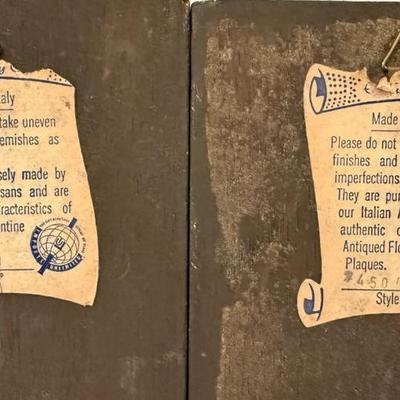 taly
take uneven
emishes as
sely made by
sans and are
aracteristics of
entine
IMPORTS
UNLIMITED
Made
Please do not
finishes and
imperfections
They are pur
our Italian A
authentic c
Antiqued Flo
Plaques.
$4.50
Style